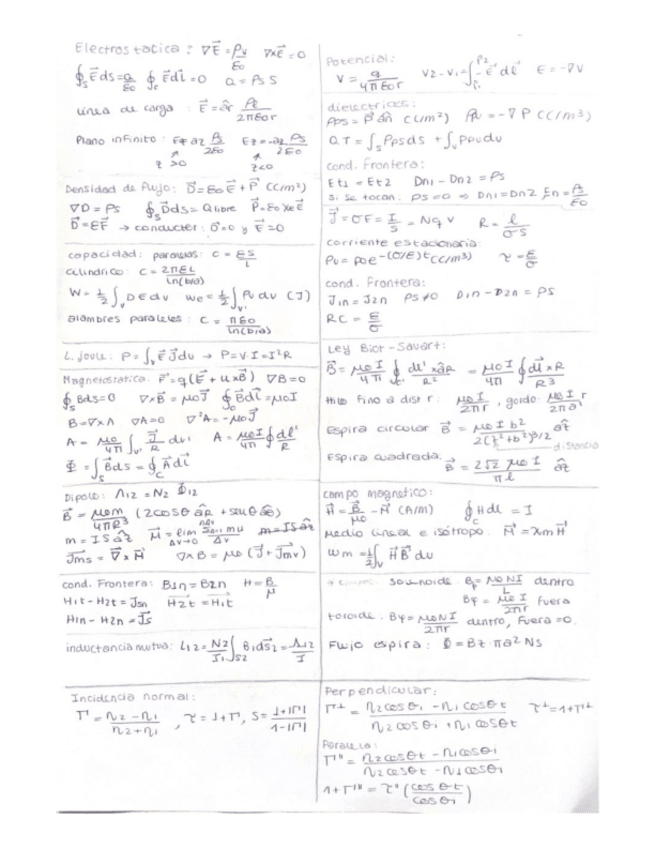 Electrostatica: ∇E⃗ = ρv/ε0   ∇xE⃗ = 0
∮s E⃗ds = Q/ε0   ∮c E⃗dl⃗ = 0   Q = ρs S
Linea de carga: E⃗ = âr ρl/2πε0r
Plano infinito: Ez = az ρs/2ε0   Ez = -az ρs/2ε0
z>0   z<0
Densidad de flujo: D⃗ = ε0E⃗ + P⃗ (C/m²)
∇D = ρs   ∮s D⃗ds = Q libre   P⃗ = ε0 Xe E⃗
D⃗ = εE⃗ → conductor: D⃗=0 y E⃗=0
capacidad: paralelas: C = εS/L
cilindrico: C = 2πεL/ln(b/a)
W = 1/2 ∫v D E dv   We = 1/2 ∫v' ρv dv (J)
alambres paralelos: C = πε0/ln(b/a)
L. Joule: P = ∫v E⃗ J⃗ dv → P = V·I = I²R
Magnetostatica: F⃗ = q(E⃗ + u x B⃗)   ∇B = 0
∮s Bds = 0   ∇xB⃗ = μ0J⃗   ∮c B⃗dl⃗ = μ0I
B = ∇xA   ∇A = 0   ∇²A = -μ0J⃗
A = μ0/4π ∫v' J⃗/R dv'   A = μ0I/4π ∮ dl⃗'/R
Φ = ∫s B⃗ds = ∮c A⃗dl⃗
Dipolo: Λ12 = N2 Φ12
B⃗ = μ0m/4πR³ (2cosθ âR + senθ âθ)
m = IS âz   M⃗ = lim Δv→0 Σ mu/Δv   m = IS âz
J⃗ms = ∇⃗ x M⃗   ∇xB = μ0 (J⃗ + J⃗mv)
cond. Frontera: B1n = B2n   H = B/μ
H1t - H2t = Jsn   H2t = H1t
H1n - H2n = J⃗s
inductancia mutua: L12 = N2/I1 ∫s2 B1ds2 = Λ12/I
Incidencia normal:
Γ = η2 - η1/η2 + η1 , τ = 1+Γ, S = 1+|Γ|/1-|Γ|
Potencial:
V = q/4πε0r   V2 - V1 = ∫P1 P2 -E⃗ dl⃗   E = -∇V
dielectricos:
ρps = P⃗ ân (C/m²)   ρv = -∇P (C/m³)
QT = ∫s ρps ds + ∫v ρpv dv
cond. Frontera:
Et1 = Et2   Dn1 - Dn2 = ρs
si se tocan: ρs=0 ⇒ Dn1 = Dn2, En = ρs/ε0
J⃗ = σE = I/S = Nqv   R = l/σS
corriente estacionaria:
ρv = ρ0 e^-(σ/ε)t (C/m³)   τ = ε/σ
cond. Frontera:
J1n = J2n   ρs≠0   D1n - D2n = ρs
RC = ε/σ
Ley Biot-Savart:
B⃗ = μ0I/4π ∮c dl' x âR/R² = μ0I/4π ∮ dl⃗ x R/R³
Hilo fino a dist r: μ0I/2πr , gordo: μ0Ir/2πa²
Espira circular B⃗ = μ0 I b²/2(z²+b²)^3/2 âz
distancia
Espira cuadrada: B⃗ = 2√2 μ0 I/πl âz
campo magnetico:
H⃗ = B⃗/μ0 - M⃗ (A/m)   ∮c Hdl = I
Medio lineal e isótropo: M⃗ = Xm H⃗
Wm = 1/2 ∫v H⃗ B⃗ dv
Solenoide: Bφ = μ0NI/L dentro
Bφ = μ0 I/2πr fuera
toroide. Bφ = μ0NI/2πr dentro, fuera = 0.
Flujo espira: Φ = Bz πa² Ns
Perpendicular:
Γ⊥ = η2cosθi - η1cosθt/η2cosθi + η1cosθt   τ⊥ = 1+Γ⊥
Paralela:
Γ" = η2cosθt - η1cosθi/η2cosθt - η1cosθi
1+Γ" = τ" (cosθt/cosθi)